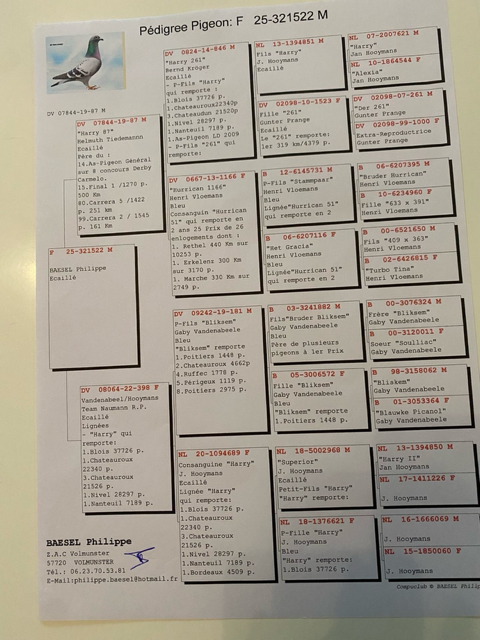 Pédigree Pigeon: F 25-321522 M
DV 07844-19-87 M
DV 07844-19-87 M
"Harry 87"
Helmuth Tiedemann
Ecaillé
Père du :
14.As-Pigeon Général
sur 8 concours Derby
Carmelo.
15.Final 1 /1270 p.
500 Km
80.Carrera 5 /1422
p. 251 km
99.Carrera 2 / 1545
p. 161 Km
F 25-321522 M
BAESEL Philippe
Ecaillé
DV 08064-22-398 F
Vandenabeel/Hooymans
Team Naumann R.P.
Ecaillé
Lignées
- "Harry" qui
remporte:
1.Blois 37726 p.
1.Chateauroux
22340 p.
3.Chateauroux
21526 p.
1.Nivel 28297 p.
1.Nanteuil 7189 p.
DV 0824-14-846 M
"Harry 261"
Bernd Kröger
Ecaillé
- P-Fils "Harry"
qui remporte :
1.Blois 37726 p.
1.Chateauroux22340p
3.Chateaudun 21520p
1.Nivel 28297 p.
1.Nanteuil 7189 p.
1.As-Pigeon LD 2009
- P-Fils "261" qui
remporte:
DV 0667-13-1166 F
"Hurrican 1166"
Henri Vloemans
Bleu
Consanguin "Hurrican
51" qui remporte en
2 ans 25 Prix de 26
enlogements dont :
1. Rethel 440 Km sur
10253 p.
1. Erkelenz 300 Km
sur 3170 p.
1. Marche 330 Km sur
2749 p.
DV 09242-19-181 M
P-Fils "Bliksem"
Gaby Vandenabeele
Bleu
"Bliksem" remporte
1.Poitiers 1448 p.
2.Chateauroux 4662p
4.Ruffec 1778 p.
5.Périgeux 1119 p.
8.Poitiers 2975 p.
NL 20-1094689 F
Consanguine "Harry"
J. Hooymans
Ecaillé
Lignée "Harry"
qui remporte:
1.Blois 37726 p.
1.Chateauroux
22340 p.
3.Chateauroux
21526 p.
1.Nivel 28297 p.
1.Nanteuil 7189 p.
1.Bordeaux 4509 p.
NL 13-1394851 M
Fils "Harry"
J. Hooymans
Ecaillé
DV 02098-10-1523 F
Fille "261"
Gunter Prange
Ecaillé
Le "261" remporte:
1er 319 km/4379 p.
B 12-6145731 M
P-Fils "Stammpaar"
Henri Vloemans
Bleu
Lignée"Hurrican 51"
qui remporte en 2
B 06-6207116 F
"Ket Gracia"
Henri Vloemans
Bleu
Lignée"Hurrican 51"
qui remporte en 2
B 03-3241882 M
Fils"Bruder Bliksem"
Gaby Vandenabeele
Bleu
Père de plusieurs
pigeons à 1er Prix
B 05-3006572 F
Fille "Bliksem"
Gaby Vandenabeele
Bleu
"Bliksem" remporte
1.Poitiers 1448 p.
NL 18-5002968 M
"Superior"
J. Hooymans
Ecaillé
Petit-Fils "Harry"
"Harry" remporte:
NL 18-1376621 F
P-Fille "Harry"
J. Hooymans
Bleu
"Harry" remporte:
1.Blois 37726 p.
NL 07-2007621 M
"Harry"
Jan Hooymans
NL 10-1864544 F
"Alexia"
Jan Hooymans
DV 02098-07-261 M
"Der 261"
Gunter Prange
DV 02098-99-1000 F
Extra-Reproductrice
Gunter Prange
B 06-6207395 M
"Bruder Hurrican"
Henri Vloemans
B 10-6234960 F
Fille "633 x 391"
Henri Vloemans
B 00-6521650 M
Fils "409 x 363"
Henri Vloemans
B 02-6426815 F
"Turbo Tina"
Henri Vloemans
B 00-3076324 M
Frère "Bliksem"
Gaby Vandenabeele
B 00-3120011 F
Soeur "Soulliac"
Gaby Vandenabeele
B 98-3158062 M
"Bliskem"
Gaby Vandenabeele
B 01-3053364 F
"Blauwke Picanol"
Gaby Vandenabeele
NL 13-1394850 M
"Harry II"
Jan Hooymans
NL 17-1411226 F
J. Hooymans
NL 16-1666069 M
J. Hooymans
NL 15-1850060 F
J. Hooymans
BAESEL Philippe
Z.A.C Volmunster
57720 VOLMUNSTER
Tél.: 06.23.70.53.81
E-Mail:philippe.baesel@hotmail.fr
Compuclub © BAESEL